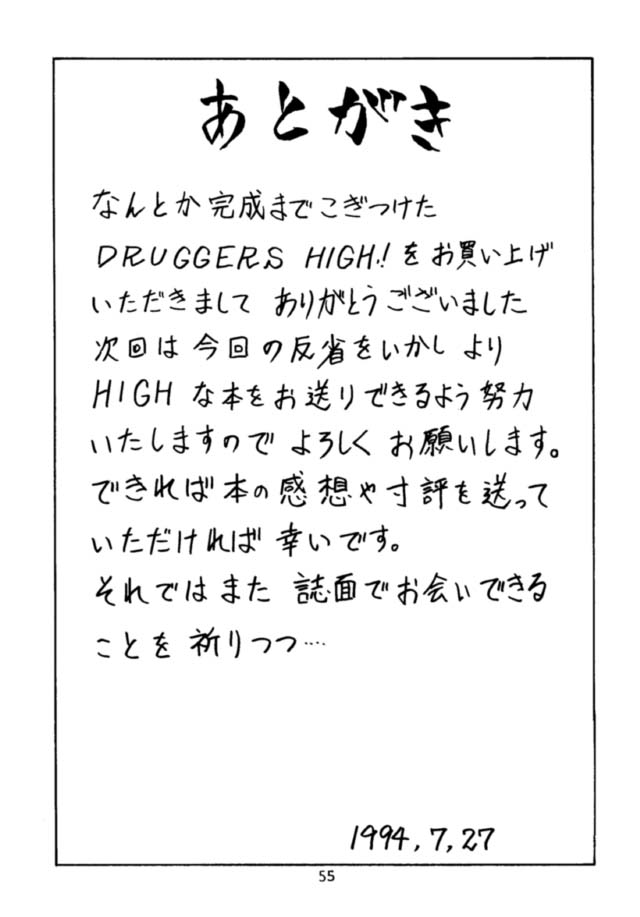 あとがき
なんとか完成までこぎつけた
DRUGGERS HIGH!!をお買い上げ
いただきまして ありがとうございました
次回は今回の反省をいかし より
HIGH な本をお送りできるよう努力
いたしますので よろしく お願いします。
できれば本の感想や寸評を送って
いただければ 幸いです。
それではまた 誌面でお会いできる
ことを 祈りつつ…
1994,7,27
55